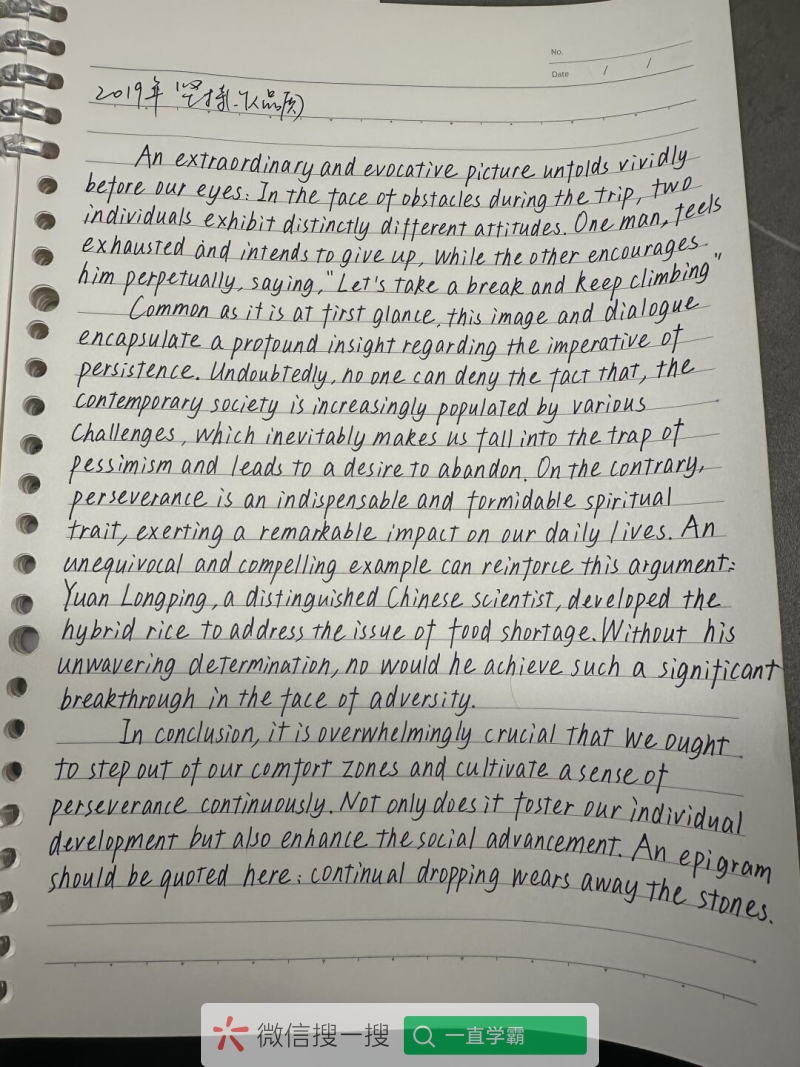 No.
Date / /
2019年 坚持(品质)
An extraordinary and evocative picture unfolds vividly
before our eyes: In the face of obstacles during the trip, two
individuals exhibit distinctly different attitudes. One man, feels
exhausted and intends to give up, while the other encourages
him perpetually, saying, "Let's take a break and keep climbing"
Common as it is at first glance, this image and dialogue
encapsulate a profound insight regarding the imperative of
persistence. Undoubtedly, no one can deny the fact that, the
contemporary society is increasingly populated by various
challenges, which inevitably makes us fall into the trap of
pessimism and leads to a desire to abandon. On the contrary,
perseverance is an indispensable and formidable spiritual
trait, exerting a remarkable impact on our daily lives. An
unequivocal and compelling example can reinforce this argument:
Yuan Longping, a distinguished Chinese scientist, developed the
hybrid rice to address the issue of food shortage. Without his
unwavering determination, no would he achieve such a significant
breakthrough in the face of adversity.
In conclusion, it is overwhelmingly crucial that we ought
to step out of our comfort zones and cultivate a sense of
perseverance continuously. Not only does it foster our individual
development but also enhance the social advancement. An epigram
should be quoted here: continual dropping wears away the stones.
微信搜一搜 一直学霸